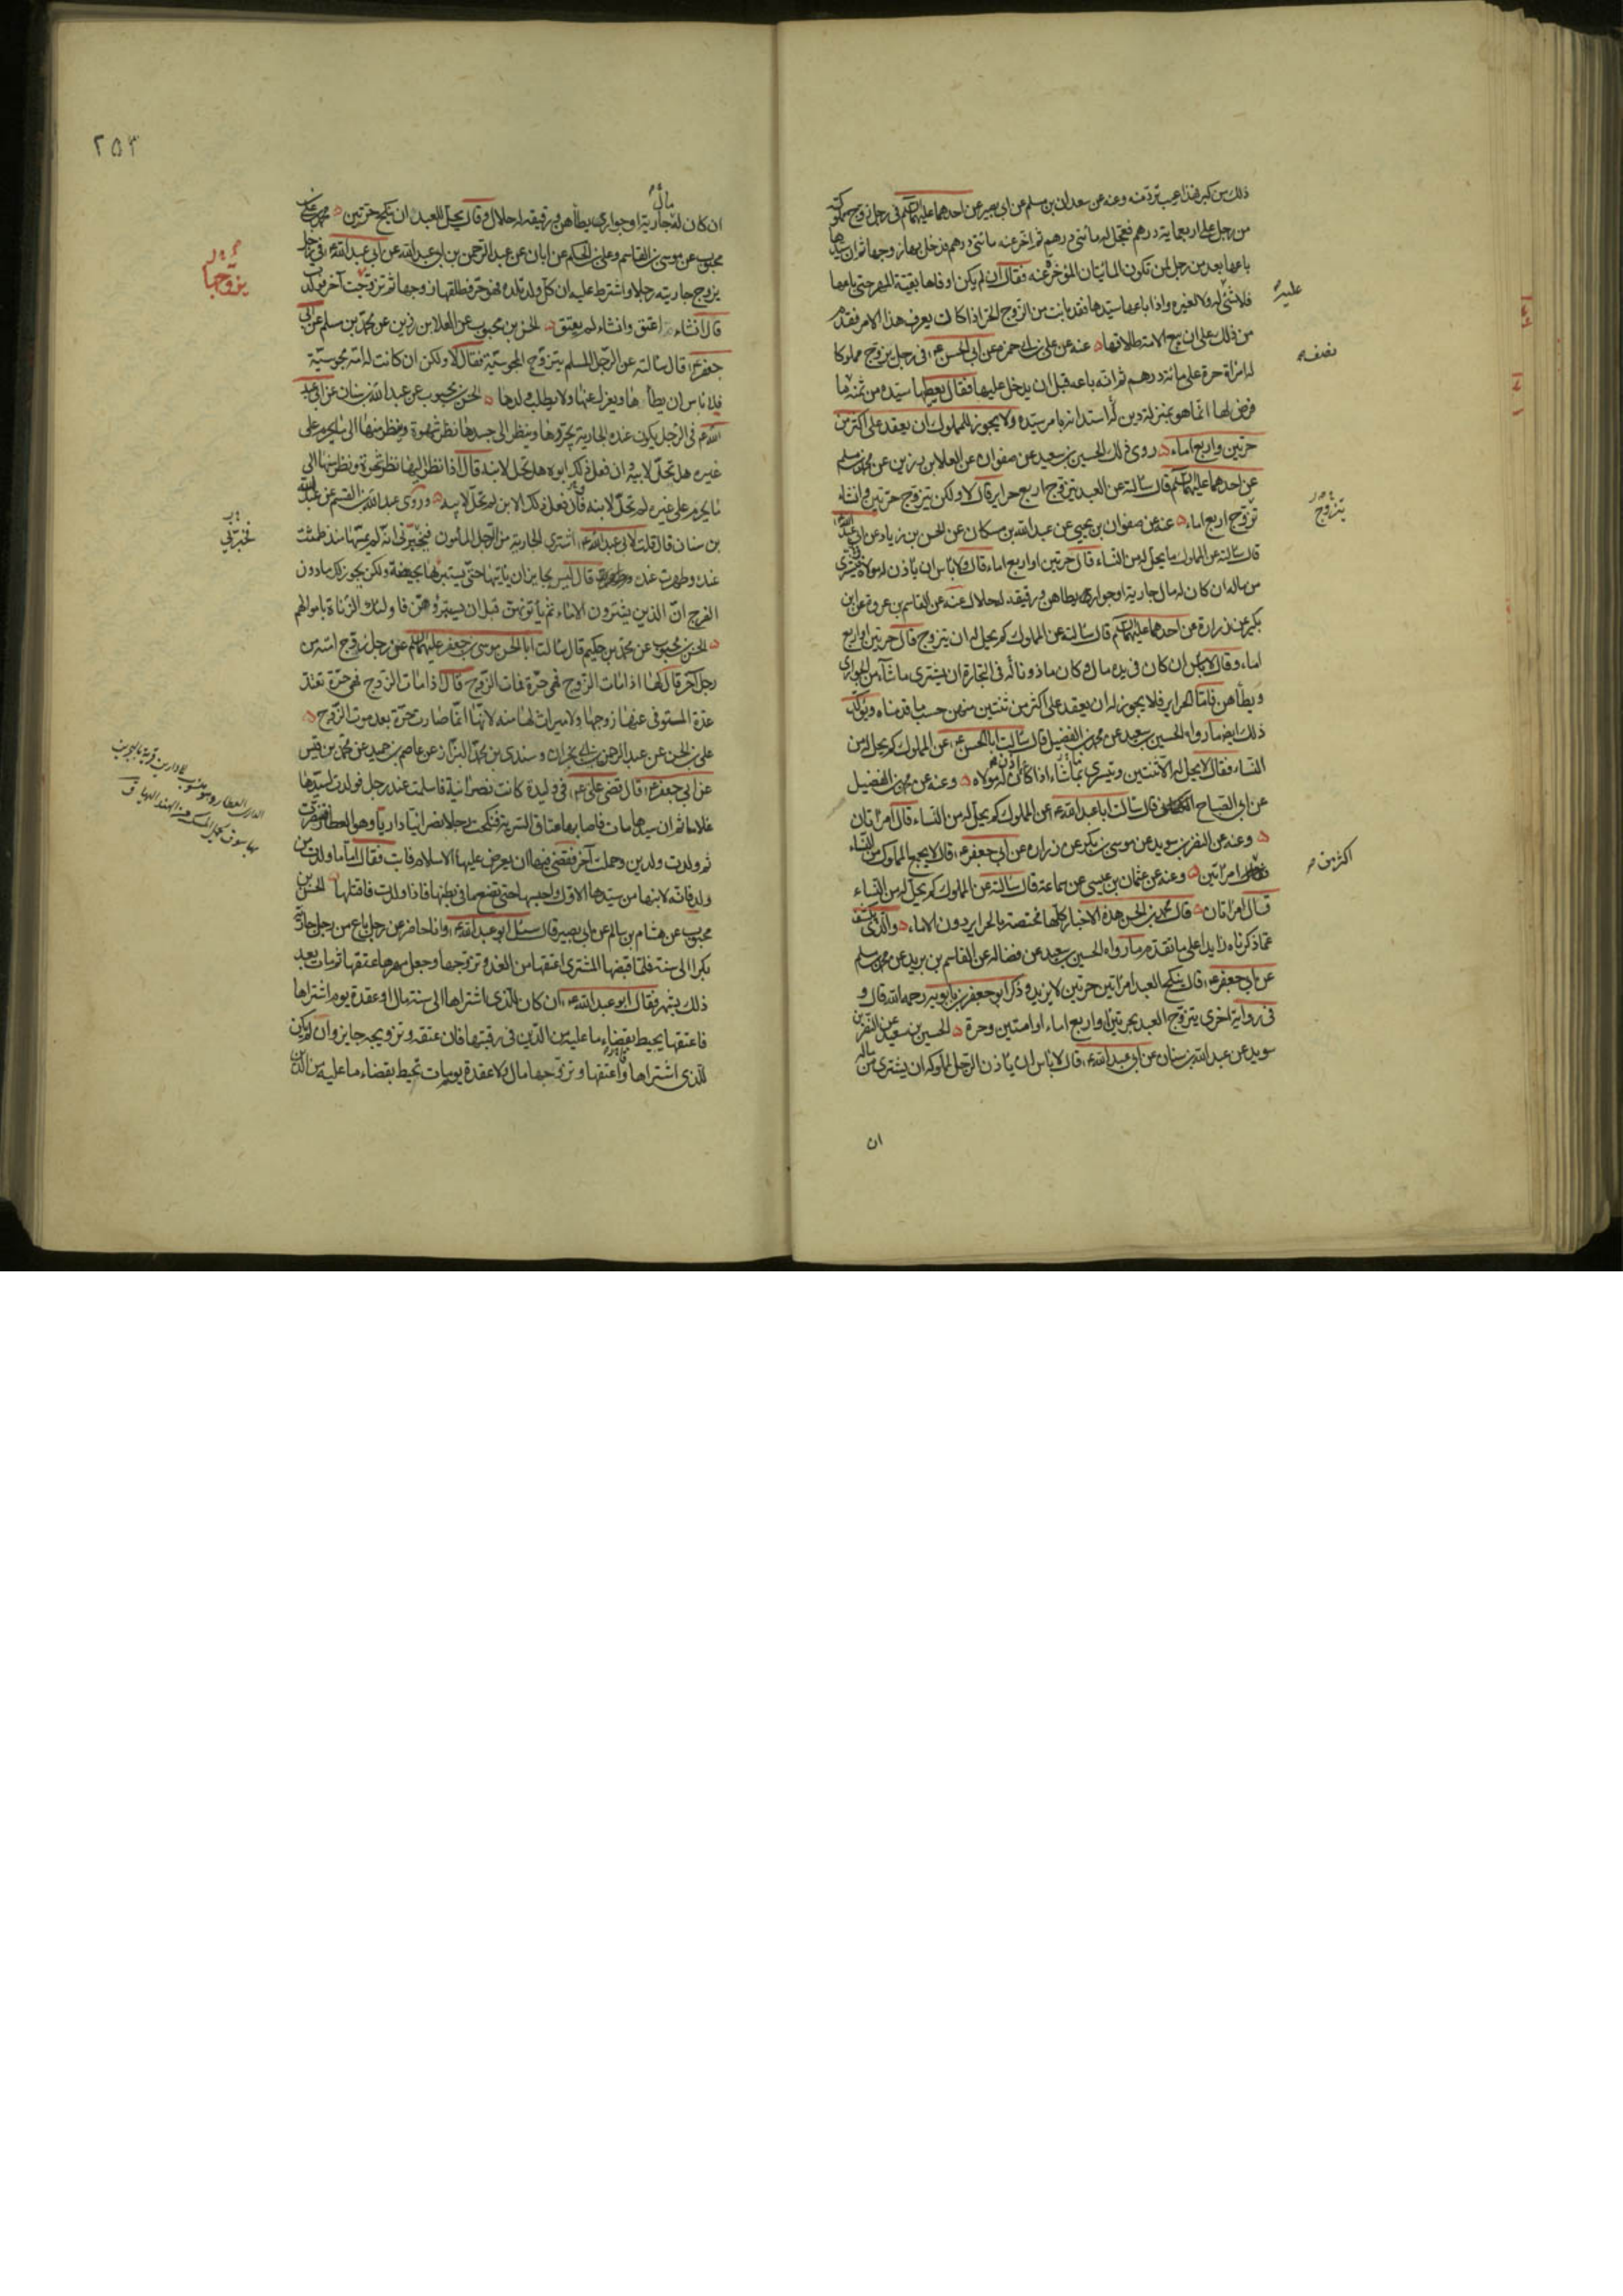 ذلك من كبر فهذا عيب ترد منه وعنه عن سعدان بن مسلم عن ابي بصير عن احدهما عليهما السلم في رجل زوج مملوكته
من رجل على اربعماية درهم فعجل له مائتي درهم ثم اخر عنه مائتي درهم فدخل بها زوجها ثم ان سيدها
باعها بعد من رجل لمن تكون المائتان المؤخرة عنه فقال ان لم يكن اوفاها بقية المهر حتى باعها
فلا شئ له ولا لغيره واذا باعها سيدها فقد بانت من الزوج الحر اذا كان يعرف هذا الامر فقد تقدم
من ذلك على ان بيع الامة طلاقها عنه عن علي بن ابي حمزة عن ابي الحسن ع في رجل يزوج مملوكا
له امراة حرة على مائة درهم ثم انه باعه قبل ان يدخل عليها فقال يعطيها سيده من ثمنه ما
فرض لها انما هو بمنزلة دين له استدانه بامر سيده ولا يجوز للمملوك ان يعقد على اكثر من
حرتين واربع اماء روى ذلك الحسين بن سعيد عن صفوان عن العلا بن رزين عن محمد بن مسلم
عن احدهما عليهما السلم قال سالته عن العبد يتزوج اربع حراير قال لا ولكن يتزوج حرتين وانشاء
تزوج اربع اماء عنه عن صفوان بن يحيى عن عبد الله بن مسكان عن الحسن بن زياد عن ابي عبد الله ع
قال سالته عن المملوك ما يحل له من النساء قال حرتين او اربع اماء قال ولا باس ان ياذن له مولاه فيشتري
من ماله ان كان له مال جارية او جواري يطاهن ورقيقه له حلال عنه عن القاسم بن عروة عن ابن
بكير عن زرارة عن احدهما عليهما السلم قال سالته عن المملوك كم يحل له ان يتزوج قال حرتين او اربع
اماء وقال لا باس ان كان في يده مال وكان ماذونا له في التجارة ان يشتري ما شاء من الجواري
ويطأهن فاما الحراير فلا يجوز له ان يعقد على اكثر من ثنتين منهن حسب ما قدمناه ويؤكد
ذلك ايضا ما رواه الحسين بن سعيد عن محمد بن الفضيل قال سالت ابا الحسن ع عن المملوك كم يحل له من
النساء فقال لا يحل له الا ثنتين ويتسرى بما شاء اذا كان اذن له مولاه وعنه عن محمد بن الفضيل
عن ابي الصباح الكناني قال سالت ابا عبد الله ع عن المملوك كم يحل له من النساء قال امرأتان
وعنه عن النضر بن سويد عن موسى بن بكر عن زرارة عن ابي جعفر ع قال لا يجمع المملوك من النساء
امراتين وعنه عن عثمان بن عيسى عن سماعة قال سالته عن المملوك كم يحل له من النساء
قال امراتان قال محمد بن الحسن هذه الاخبار كلها مختصة بالحراير دون الاماء والذي يكشف
عما ذكرناه زايدا على ما تقدم ما رواه الحسين بن سعيد عن فضالة عن القاسم بن بريد عن محمد بن مسلم
عن ابي جعفر ع قال ينكح العبد امراتين حرتين لا يزيد وذكر ابو جعفر بن بابويه رحمه الله قال و
في رواية اخرى يتزوج العبد بحرتين او اربع اماء او امتين وحرة الحسين بن سعيد عن النضر بن
سويد عن عبد الله بن سنان عن ابي عبد الله ع قال لا باس ان ياذن الرجل لمملوكه ان يشتري من ماله
ان
عليه
نصف
يتزوج
اكثر من
٢٥٣
ان كان له مال جارية او جواري يطأهن ورقيقه له حلال وقال يحل للعبد ان ينكح حرتين محمد بن علي بن
محبوب عن موسى بن القاسم وعلي بن الحكم عن ابان عن عبد الرحمن بن ابي عبد الله عن ابي عبد الله ع في رجل
يزوج جاريته رجلا واشترط عليه ان كل ولد تلده فهو حر فطلقها زوجها ثم تزوجت آخر فولدت
قال انشاء اعتق وانشاء لم يعتق الحسن بن محبوب عن العلا بن رزين عن محمد بن مسلم عن ابي
جعفر ع قال سالته عن الرجل المسلم يتزوج المجوسية فقال لا ولكن ان كانت له امة مجوسية
فلا باس ان يطأها ويعزل عنها ولا يطلب ولدها الحسن بن محبوب عن عبد الله بن سنان عن ابي عبد
الله ع في الرجل يكون عنده الجارية يجردها وينظر الى جسدها نظر شهوة وينظر منها الى ما يحرم على
غيره هل تحل لابيه وان فعل ذلك ابوه هل تحل لابنه قال اذا نظر اليها نظر شهوة ونظر منها الى
ما يحرم على غيره لم تحل لابنه وان فعل ذلك الابن لم تحل لابيه وروى عبد الله بن القسم عن عبد الله
بن سنان قال قلت لابي عبد الله ع اشتري الجارية من الرجل المأمون فيخبرني انه لم يمسها منذ طمثت
عنده وطهرت عنده قال ليس بجايز ان ياتيها حتى يستبرئها بحيضة ولكن يجوز لك ما دون
الفرج ان الذين يشترون الاماء ثم يأتونهن قبل ان يستبرؤهن فاولئك الزناة باموالهم
الحسن بن محبوب عن محمد بن حكيم قال سالت ابا الحسن موسى بن جعفر عليهما السلم عن رجل زوج امته من
رجل آخر قال لها اذا مات الزوج فهي حرة فمات الزوج قال اذا مات الزوج فهي حرة تعتد
عدة المتوفى عنها زوجها ولا ميراث لها منه لانها انما صارت حرة بعد موت الزوج
علي بن الحسن عن عبد الرحمن بن ابي نجران وسندي بن محمد البزاز عن عاصم بن حميد عن محمد بن قيس
عن ابي جعفر ع قال قضى علي ع في وليدة كانت نصرانية فاسلمت عند رجل فولدت لسيدها
غلاما ثم ان سيدها مات فاصابها عتاق السرية فنكحت رجلا نصرانيا داريا وهو العطار فتنصرت
ثم ولدت ولدين وحملت آخر فقضى فيها ان يعرض عليها الاسلام فابت فقال اما ما ولدت من
ولد فانه لابنها من سيدها الاول واحبسها حتى تضع ما في بطنها فاذا ولدت فاقتلها الحسن بن
محبوب عن هشام بن سالم عن ابي بصير قال سئل ابو عبد الله ع وانا حاضر عن رجل باع من رجل جارية
بكرا الى سنة فلما قبضها المشتري اعتقها من الغد وتزوجها وجعل مهرها عتقها ثم مات بعد
ذلك بشهر فقال ابو عبد الله ع ان كان الذي اشتراها الى سنة مال او عقدة يوم اشتراها
فاعتقها يحيط بقضاء ما عليه من الدين في رقبتها فان عتقه وتزويجه جايز وان لم يكن
للذي اشتراها واعتقها وتزوجها مال ولا عقدة يوم مات تحيط بقضاء ما عليه من الدين
يزوجها
يخبرني